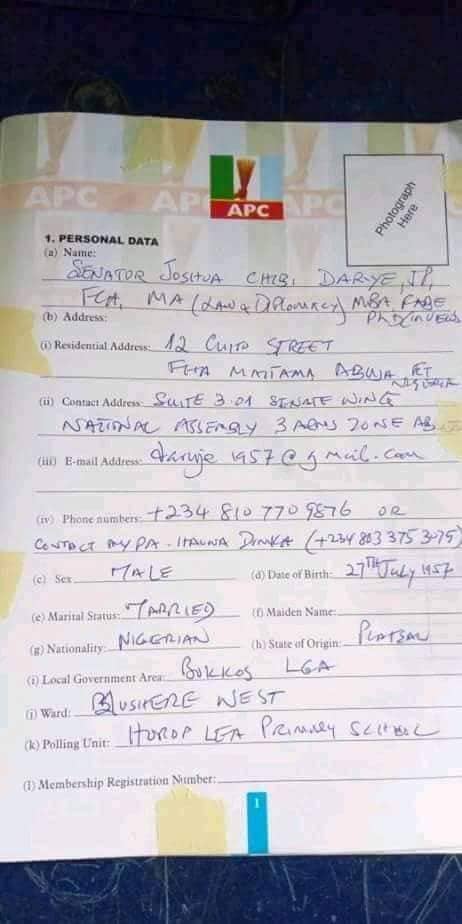 APC APC APC APC
Photograph Here
1. PERSONAL DATA
(a) Name:
SENATOR JOSHUA CHIBI DARIYE, JP,
FCA, MA (LAW & DIPLOMACY) MBA
(b) Address:
(i) Residential Address: 12 STREET
MAITAMA ABUJA FCT
NIGERIA
(ii) Contact Address: SUITE 3.01 SENATE WING
NATIONAL ASSEMBLY 3 ARMS ZONE
(iii) E-mail Address: dariye1957@gmail.com
(iv) Phone numbers: +234 810 770 9876 OR
CONTACT MY PA - (+234 803 375
(c) Sex MALE (d) Date of Birth: 27TH July 1957
(e) Marital Status: MARRIED (f) Maiden Name:
(g) Nationality: NIGERIAN (h) State of Origin: PLATEAU
(i) Local Government Area: BOKKOS LGA
(j) Ward: WEST
(k) Polling Unit: LEA PRIMARY SCHOOL
(l) Membership Registration Number:
1